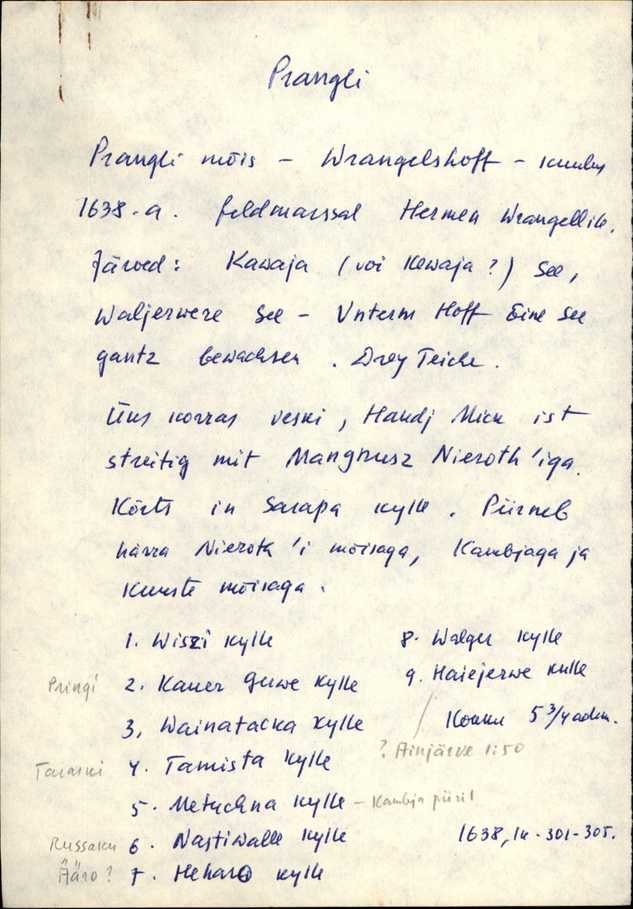 Prangli
Prangli mõis – Wrangelshoff – kuulus
1638.a. feldmarssal Hermen Wrangellile.
Järved: Kawaja (voi Kewaja?) See,
Waljerwere See – Unterm Hoff Eine See
gantz bewachsen. Drey Teiche.
Üks korras veski, Handj Mick ist
streitig mit Mangnusz Nieroth'iga.
Kõrts in Sarapa kylle. Piirneb
härra Nieroth'i mõisaga, Kambjaga ja
Kuuste mõisaga.
1. Wiszi kylle
Pringi 2. Kauer Juwe kylle
3. Wainatacka kylle
Taraski 4. Tamista kylle
5. Metuchna kylle – Kambja piiril
Russaku 6. Nastiwalle kylle
Ääro? 7. Heharo kylle
8. Walgu kylle
9. Haiejerwe kulle
Kokku 5 3/4 adm.
? Ainjärve 1:50
1638, lk. 301-305.